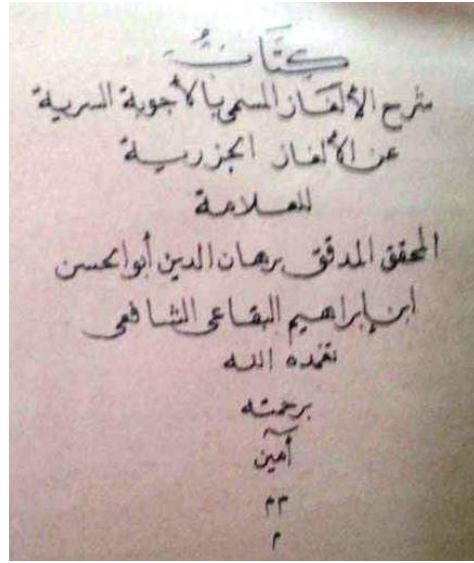 كتاب
شرح الألغاز المسمى بالأجوبة السرية
عن الألغاز الجزرية
للعلامة
المحقق المدقق برهان الدين أبو الحسن
ابن إبراهيم البقاعي الشافعي
تغمده الله
برحمته
أمين
م م
م